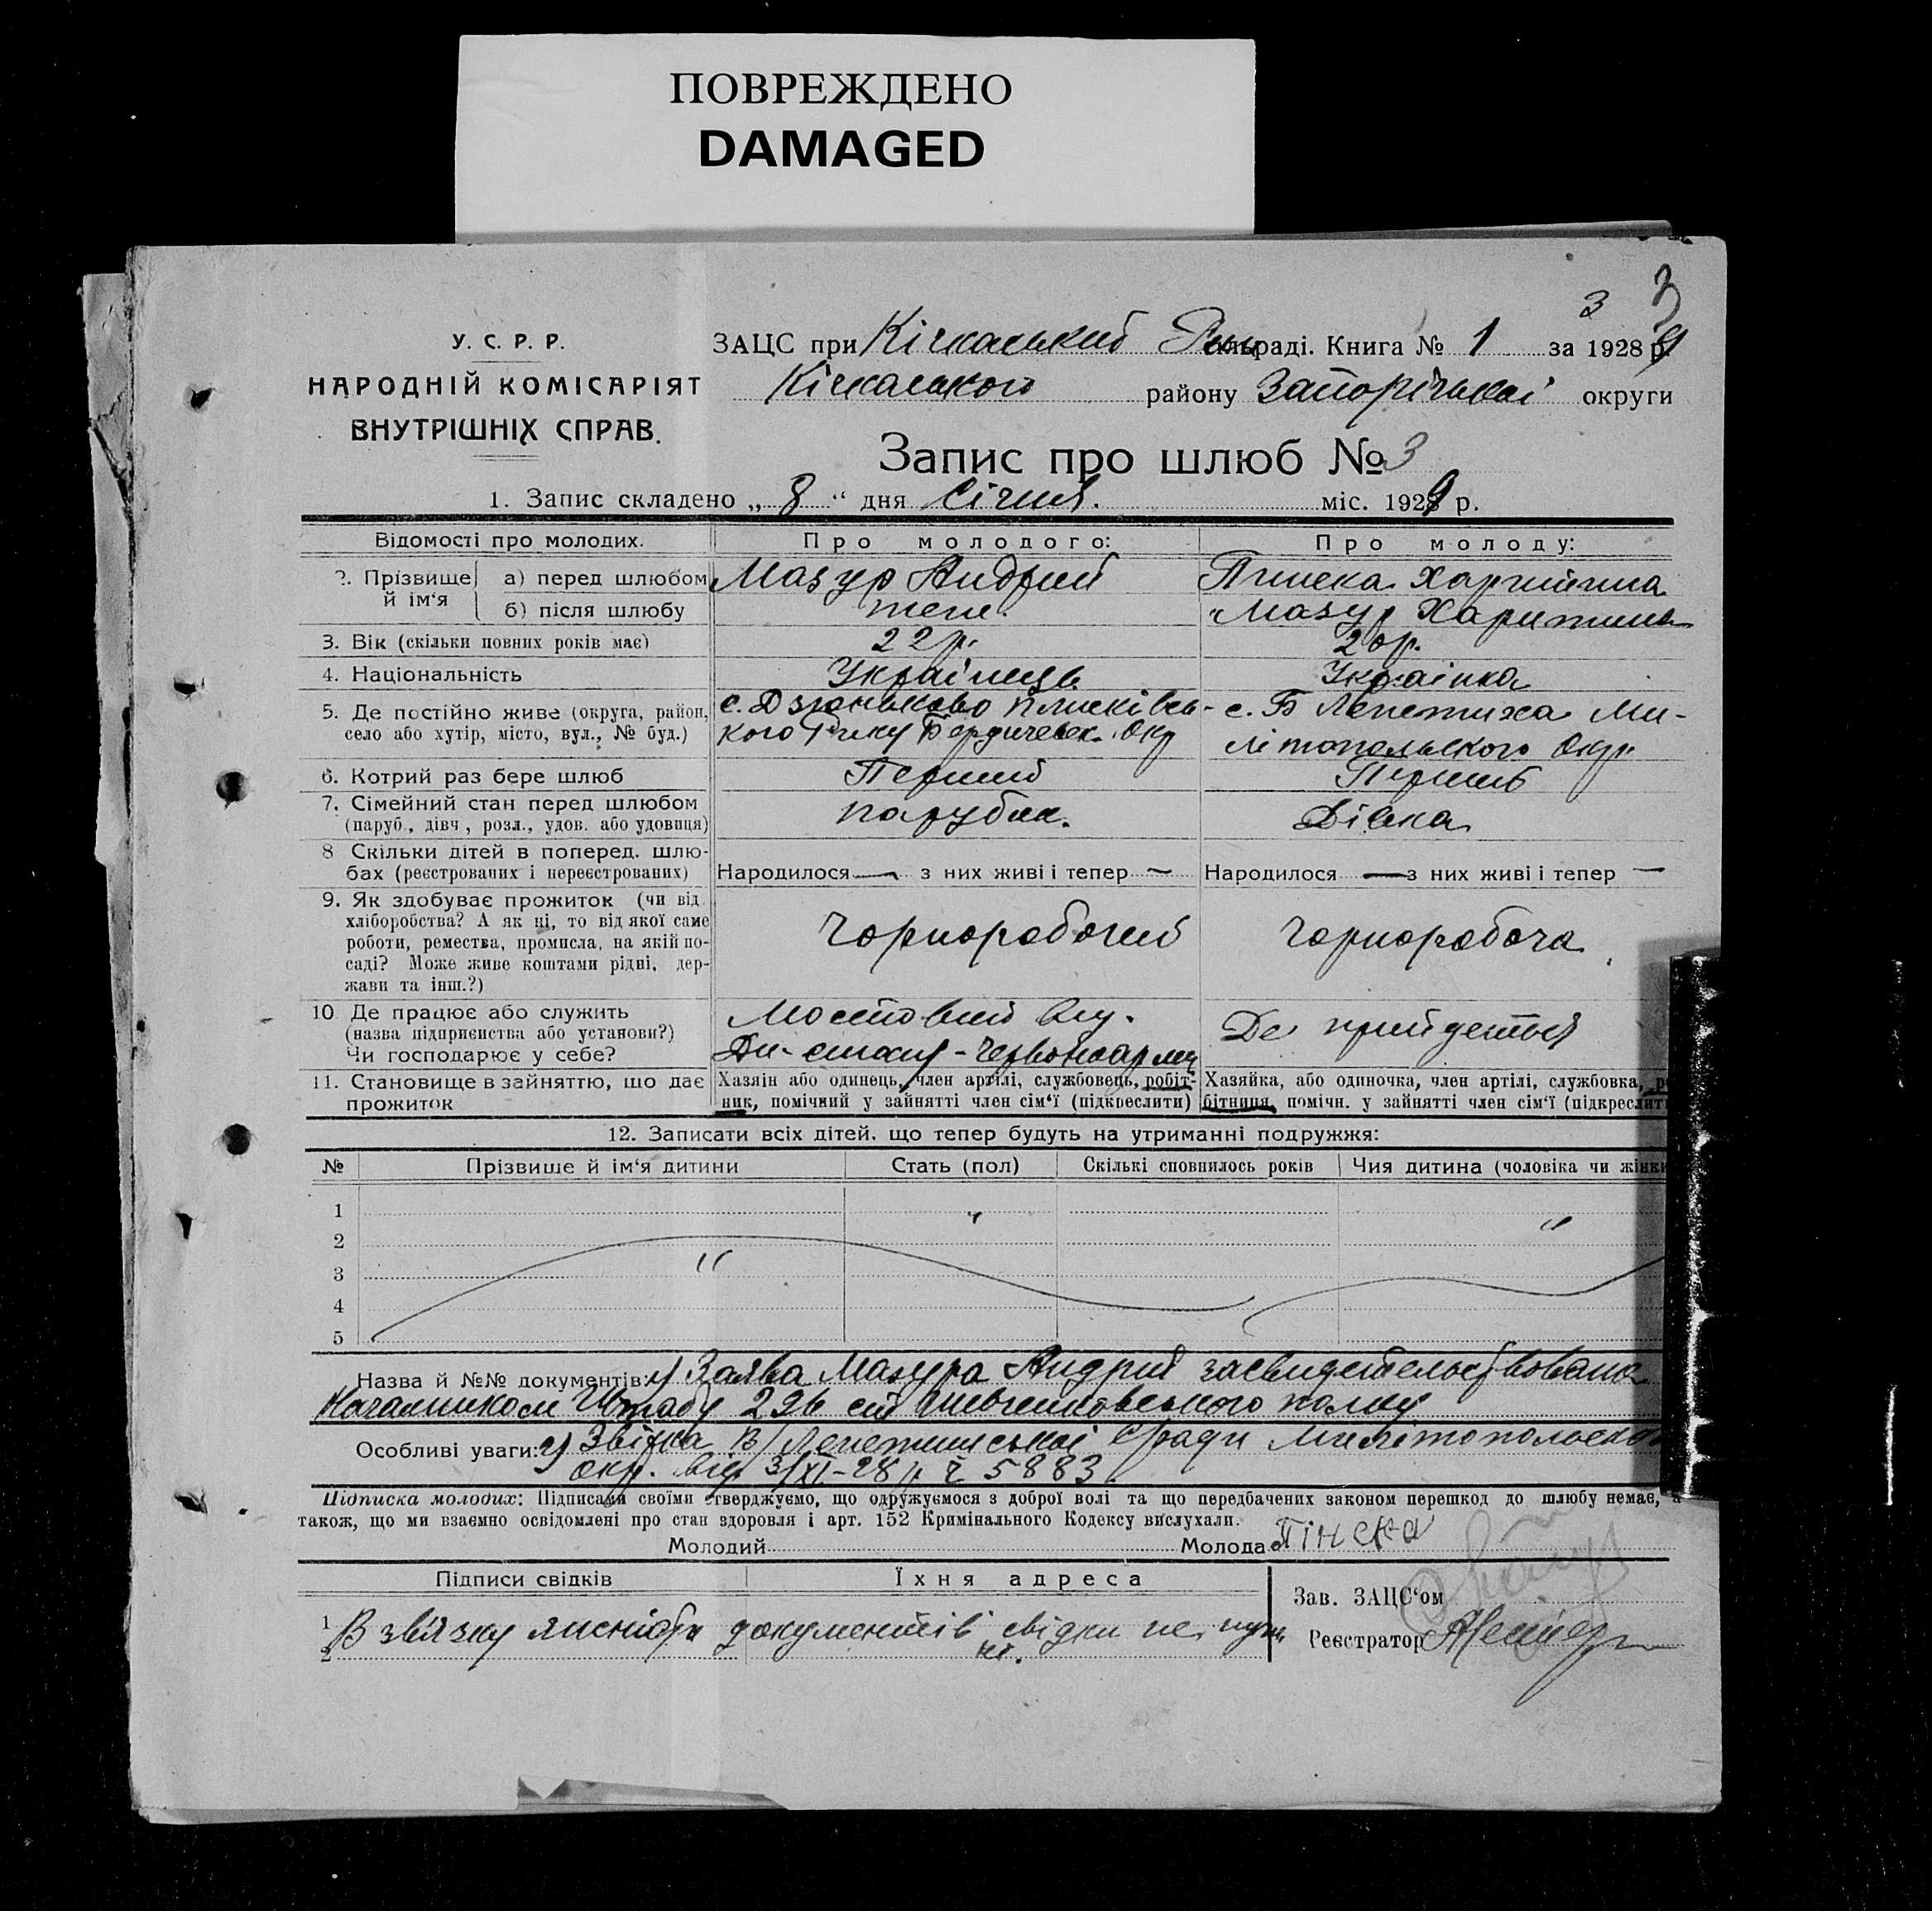 ПОВРЕЖДЕНО
DAMAGED
3 3
У. С. Р. Р.
НАРОДНІЙ КОМІСАРІЯТ
ВНУТРІШНІХ СПРАВ.
ЗАЦС при Кічкаський раді. Книга № 1 за 1929 р.
Кічкаського району Запорізької округи
Запис про шлюб № 3
1. Запис складено „ 8 “ дня Січня. міс. 1929 р.
Відомості про молодих. Про молодого: Про молоду:
2. Прізвище й ім‘я а) перед шлюбом Мазур Андрий Пінска Харитина
б) після шлюбу теж. Мазур Харитина
3. Вік (скільки повних років має) 22 р. 20 р.
4. Національність Українець Українка
5. Де постійно живе (округа, район, с. Дзюньково Плисківсь- с. Б Лепетиха Ме-
село або хутір, місто, вул., № буд.) кого Р-ну Бердичевск. Окр літопольского Окр.
6. Котрий раз бере шлюб Перший Перший
7. Сімейний стан перед шлюбом парубок. Дівка
(паруб., дівч, розл., удов. або удовиця)
8 Скільки дітей в поперед. шлю-
бах (реєстрованих і нереєстрованих) Народилося — з них живі і тепер — Народилося — з них живі і тепер —
9. Як здобуває прожиток (чи від
хліборобства? А як ні, то від якої саме
роботи, ремества, промисла, на якій по- Чорноробочий Чорнороboча
саді? Може живе коштами рідні, дер-
жави та інш.?)
10 Де працює або служить Мостовий Де прийдеться
(назва підприємства або установи?)
Чи господарює у себе? червоноармеец
11. Становище в зайняттю, що дає Хазяін або одинець, член артілі, службовець, робіт- Хазяйка, або одиночка, член артілі, службовка, ро
прожиток ник, помічний у зайнятті член сім‘ї (підкреслити) бітниця, помічн. у зайнятті член сім‘ї (підкреслит
12. Записати всіх дітей. що тепер будуть на утриманні подружжя:
№ Прізвище й ім‘я дитини Стать (пол) Скількі сповнилось років Чия дитина (чоловіка чи жінки
1
2
3
4
5
Назва й №№ документів: 1) Заява Мазура Андрия засвидетельствована
Начальником Штабу 296 Шевченковського полку
Особливі уваги: 2) Звідка В/Лепетиської с/ради Мелітопольской
окр. від 3/XI-28 р № 5883.
Підписка молодих: Підписами своїми стверджуємо, що одружуємося з доброї волі та що передбачених законом перешкод до шлюбу немає, а
також, що ми взаємно освідомлені про стан здоровля і арт. 152 Кримінального Кодексу вислухали.
Молодий Молода Пінска
Підписи свідків Їхня адреса Зав. ЗАЦС‘ом
1 В звязку документів свідки не нуж-
ні.
2
Реєстратор